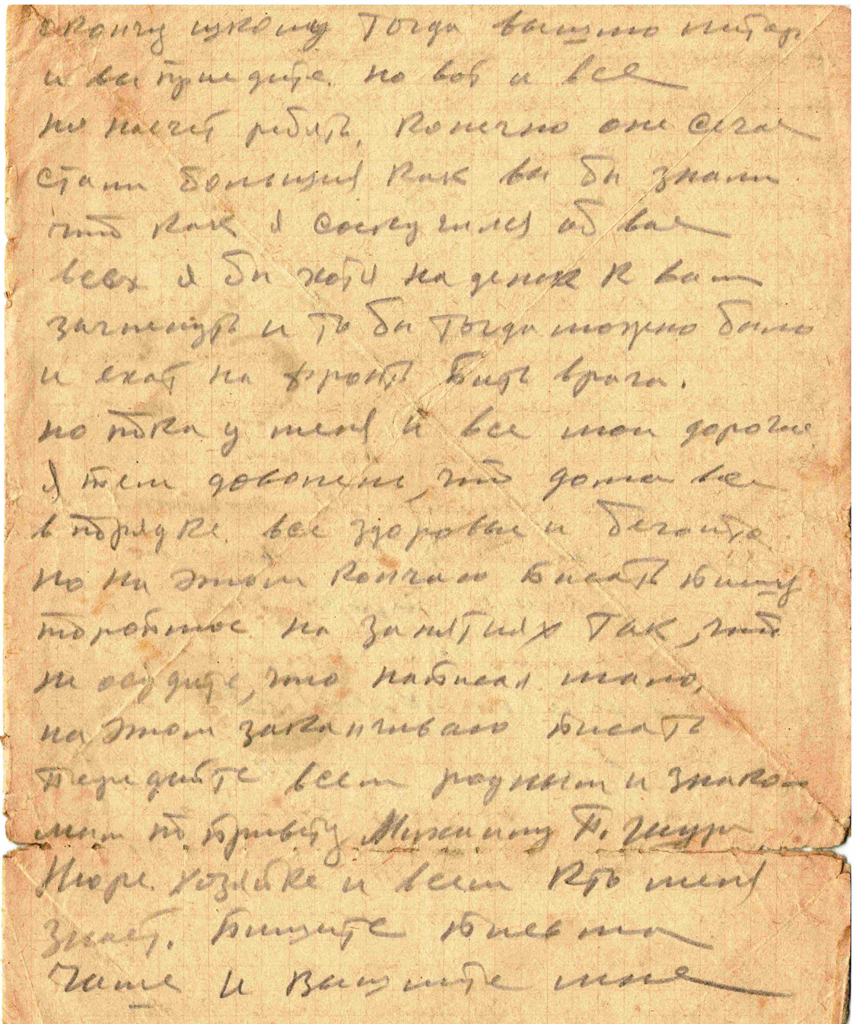 окончу школу тогда вышлю литер
и вы приедите. но вот и все
но насчет ребят, конечно оне сечас
стали большия как вы бы знали
что как я соскучился об вас
всех я бы хотя на денек к вам
заглянуть и то бы тогда можно было
и ехат на фронть бить врага.
но пока у меня и все мои дорогие
я тем доволен, что дома все
в порядке все здоровы и
но на этом кончаю писать пишу
на занятиях так, что
не осудите, что написал мало,
на этом заканчиваю писать
передайте всем родным и знаком
мым по привету Михаилу П. Шуре
Нюре. хозяйке и всем кто меня
знает. пишите писма
чаще и вышлите мне